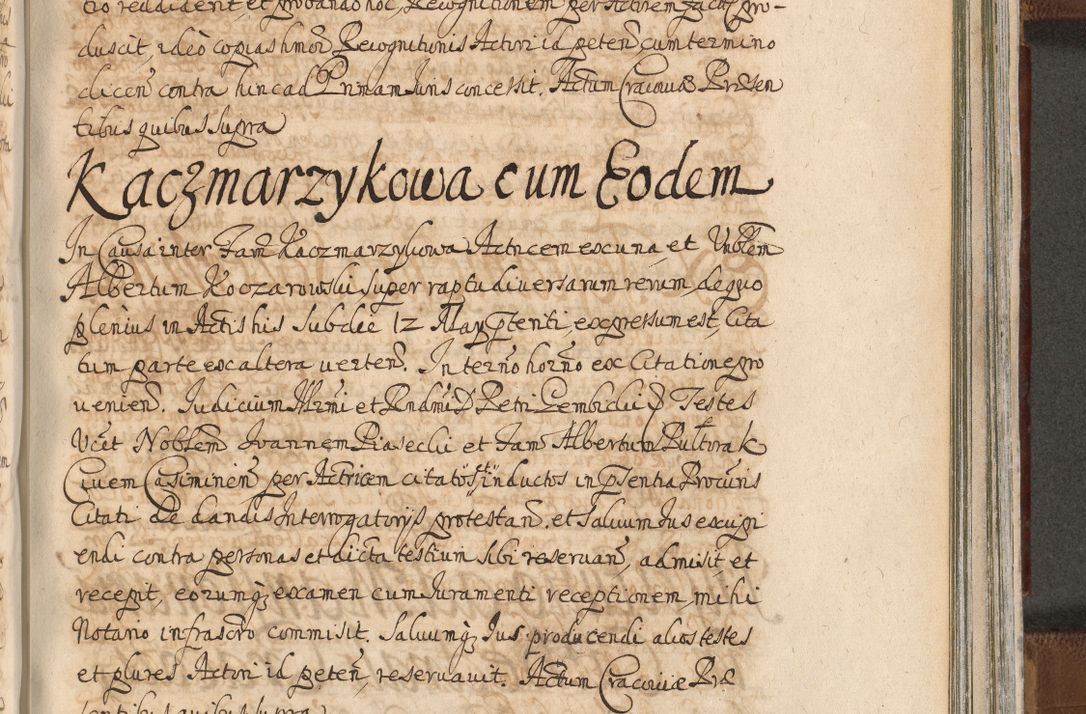 tio reddiderit et probando hoc, Recognitionem per Actorem
duscit, ideò copias hmōi Recognitionis Actori id peteñ, cum termino
diceñ contra hinc ad Primam Iuris concessit. Actum Cracoviæ Præsen
tibus quibus supra
Kaczmarzykowa cum Eodem
In Causa inter Fam̃ Kaczmarzykowa Actricem ex una, et Nobłem
Albertum Koczarowski super raptu diversarum rerum, de quo
plenius in Actis his sub die 12 May pt̃enti, expressum est, Cita
tum parte ex altera verteñ. In terño horño ex Citatione pro
venieñ. Iudicium Illr̃mi et Rndm̃i D Petri Gembicki Testes
Vc̃et Nobłem Ioannem Piasecki et Fam̃ Albertum Pultorak
Civem Casiminieñ per Actricem citatos et inductos in pŝentia Procur̃is
Citati de dandis Interrogatorijs protestañ. et salvum Ius excipi
endi contra personas et dicta testium sibi reservañ, admisit, et
recepit, eorumq3 examen cum Iuramenti receptionem, mihi
Notario infrascr̃o commisit. Salvumq3 Ius producendi alios testes
et plures Actori id peteñ, reservavit. Actum Cracoviæ Præ
sentibus quibus supra